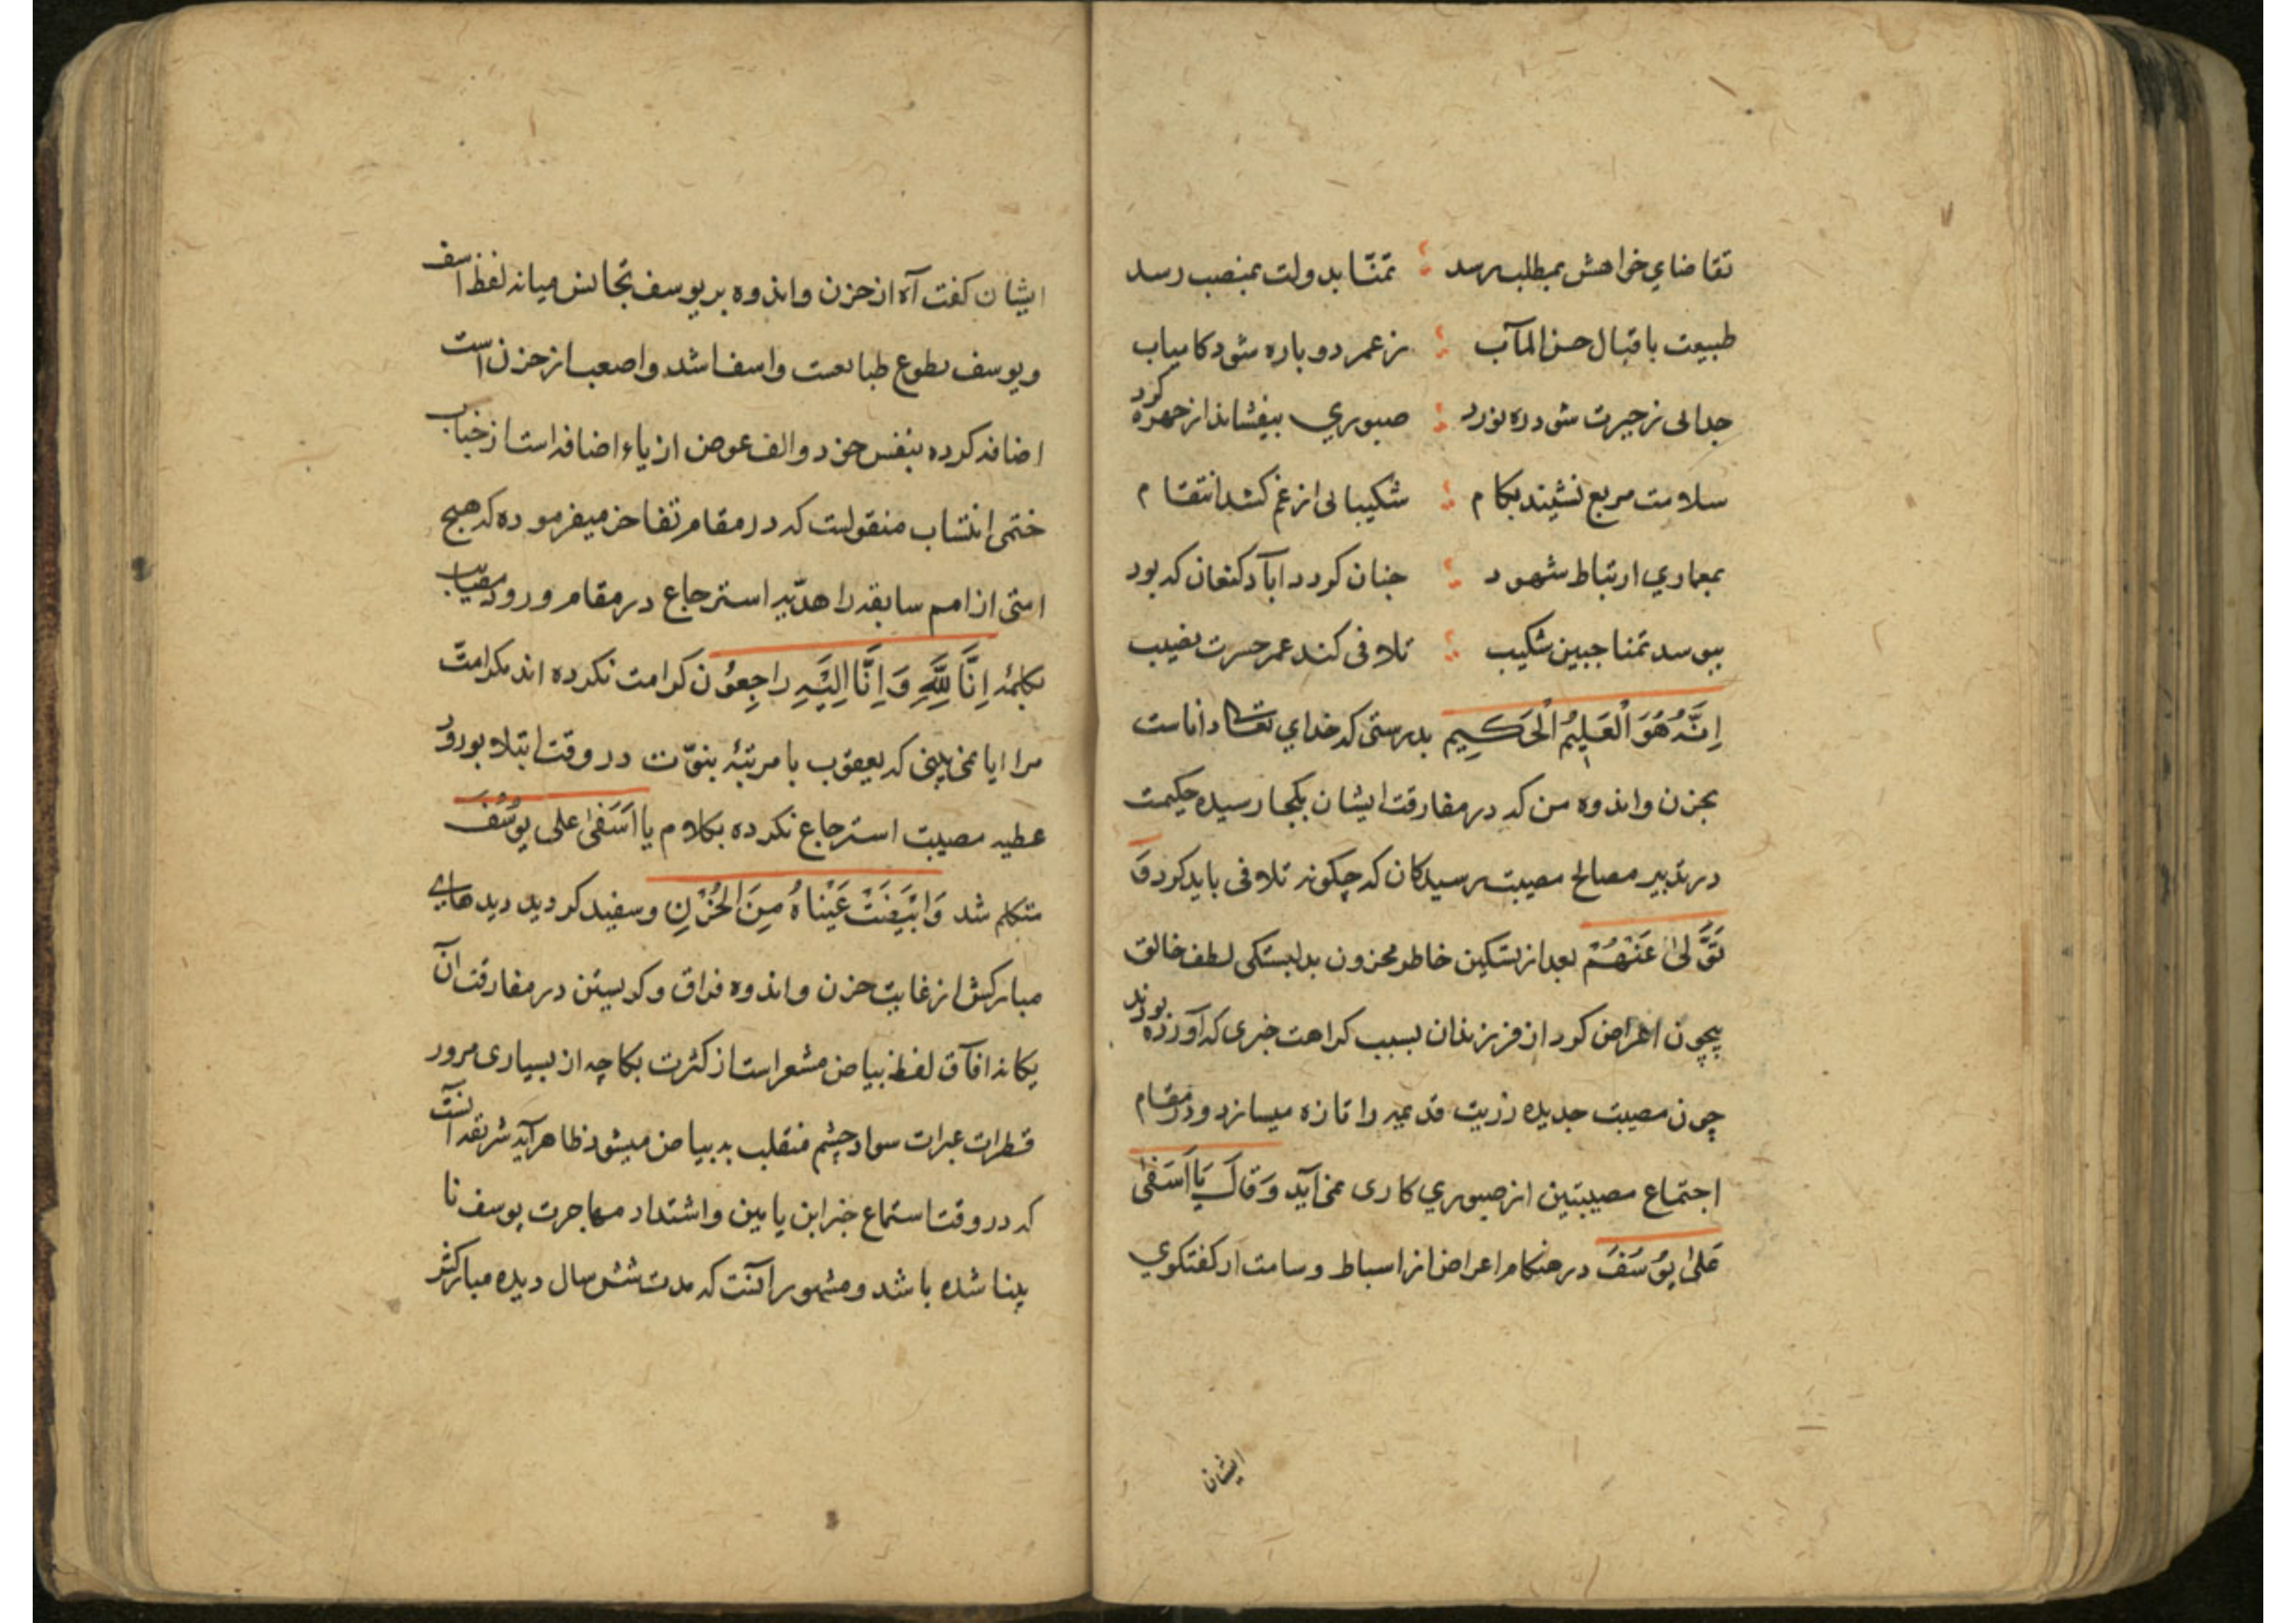 تقاضاي خواهش بمطلب رسد ؛ تمنّا بدولت بمنصب رسد
طبیعت باقبال حسن المآب ؛ ز عمر دوباره شود کامیاب
جدائی ز حیرت شود ره نورد ؛ صبوري بیفشاند از چهره کرد
سلامت مربع نشیند بکام ؛ شکیبائی از غم کشد انتقام
بمعماري ارتباط شهود ؛ چنان کردد آباد کنعان که بود
ببوسد تمنا جبین شکیب ؛ تلافی کند عمر حسرت نصیب
اِنَّهُ هُوَ الْعَلِیْمُ الْحَکِیمِ بدرستی که خداي تعالی داناست
بحزن و اندوه من که در مفارقت ایشان بکجا رسیده حکیمت
در تدبیر مصالح مصیبت رسیدکان که چکونه تلافی باید کرد وَ
تَوَلّٰی عَنْهُمْ بعد از تسکین خاطر محزون بدلبستکی لطف خالق
بیچون اعراض کرد از فرزندان بسبب کراهت خبری که آورده بودند
چون مصیبت جدیده رزیت قدیمه را تازه میسازد و در مقام
اجتماع مصیبتین از صبوري کاری نمی آید وَقَالَ یَا اَسَفٰی
عَلٰی یُوْسُفَ در هنکام اعراض از اسباط و سامت از کفتکوي
ایشان
ایشان کفت آه از حزن و اندوه بر یوسف تجانس میانه لفظ اسف
و یوسف بطوع طبایعت و اسف اشد و اصعب از حزن است
اضافه کرده بنفس خود و الف عوض از یاء اضافه است از جناب
ختمی انتساب منقولست که در مقام تفاخر میفرموده که هیچ
امتی از امم سابقه را هدّیه استرجاع در مقام ورود مصیبت
بکلمهٔ اِنَّا لِلّٰهِ وَ اِنَّا اِلَیْهِ رَاجِعُوْن کرامت نکرده اند مکر امتّ
مرا ایا نمی بینی که یعقوب با مرتبهٔ نبوّت در وقت ابتلا بورود
عطیه مصیبت استرجاع نکرده بکلام یا اَسَفٰی علی یُوْسُفَ
متکلم شد وَابْیَضَّتْ عَیْنَاهُ مِنَ الْحُزْنِ و سفید کردید دیدهای
مبارکش از غایت حزن و اندوه فراق و کریستن در مفارقت آن
یکانه افآق لفظ بیاض مشعر است از کثرت بکا چه از بسیاری مرور
قطرات عبرات سواد چشم منقلب به بیاض میشود ظاهر آیه شریفه آنست
که در وقت استماع خبر ابن یامین و اشتداد مهاجرت یوسف نا
بینا شده باشد و مشهور آنست که مدت شش سال دیده مبارکش